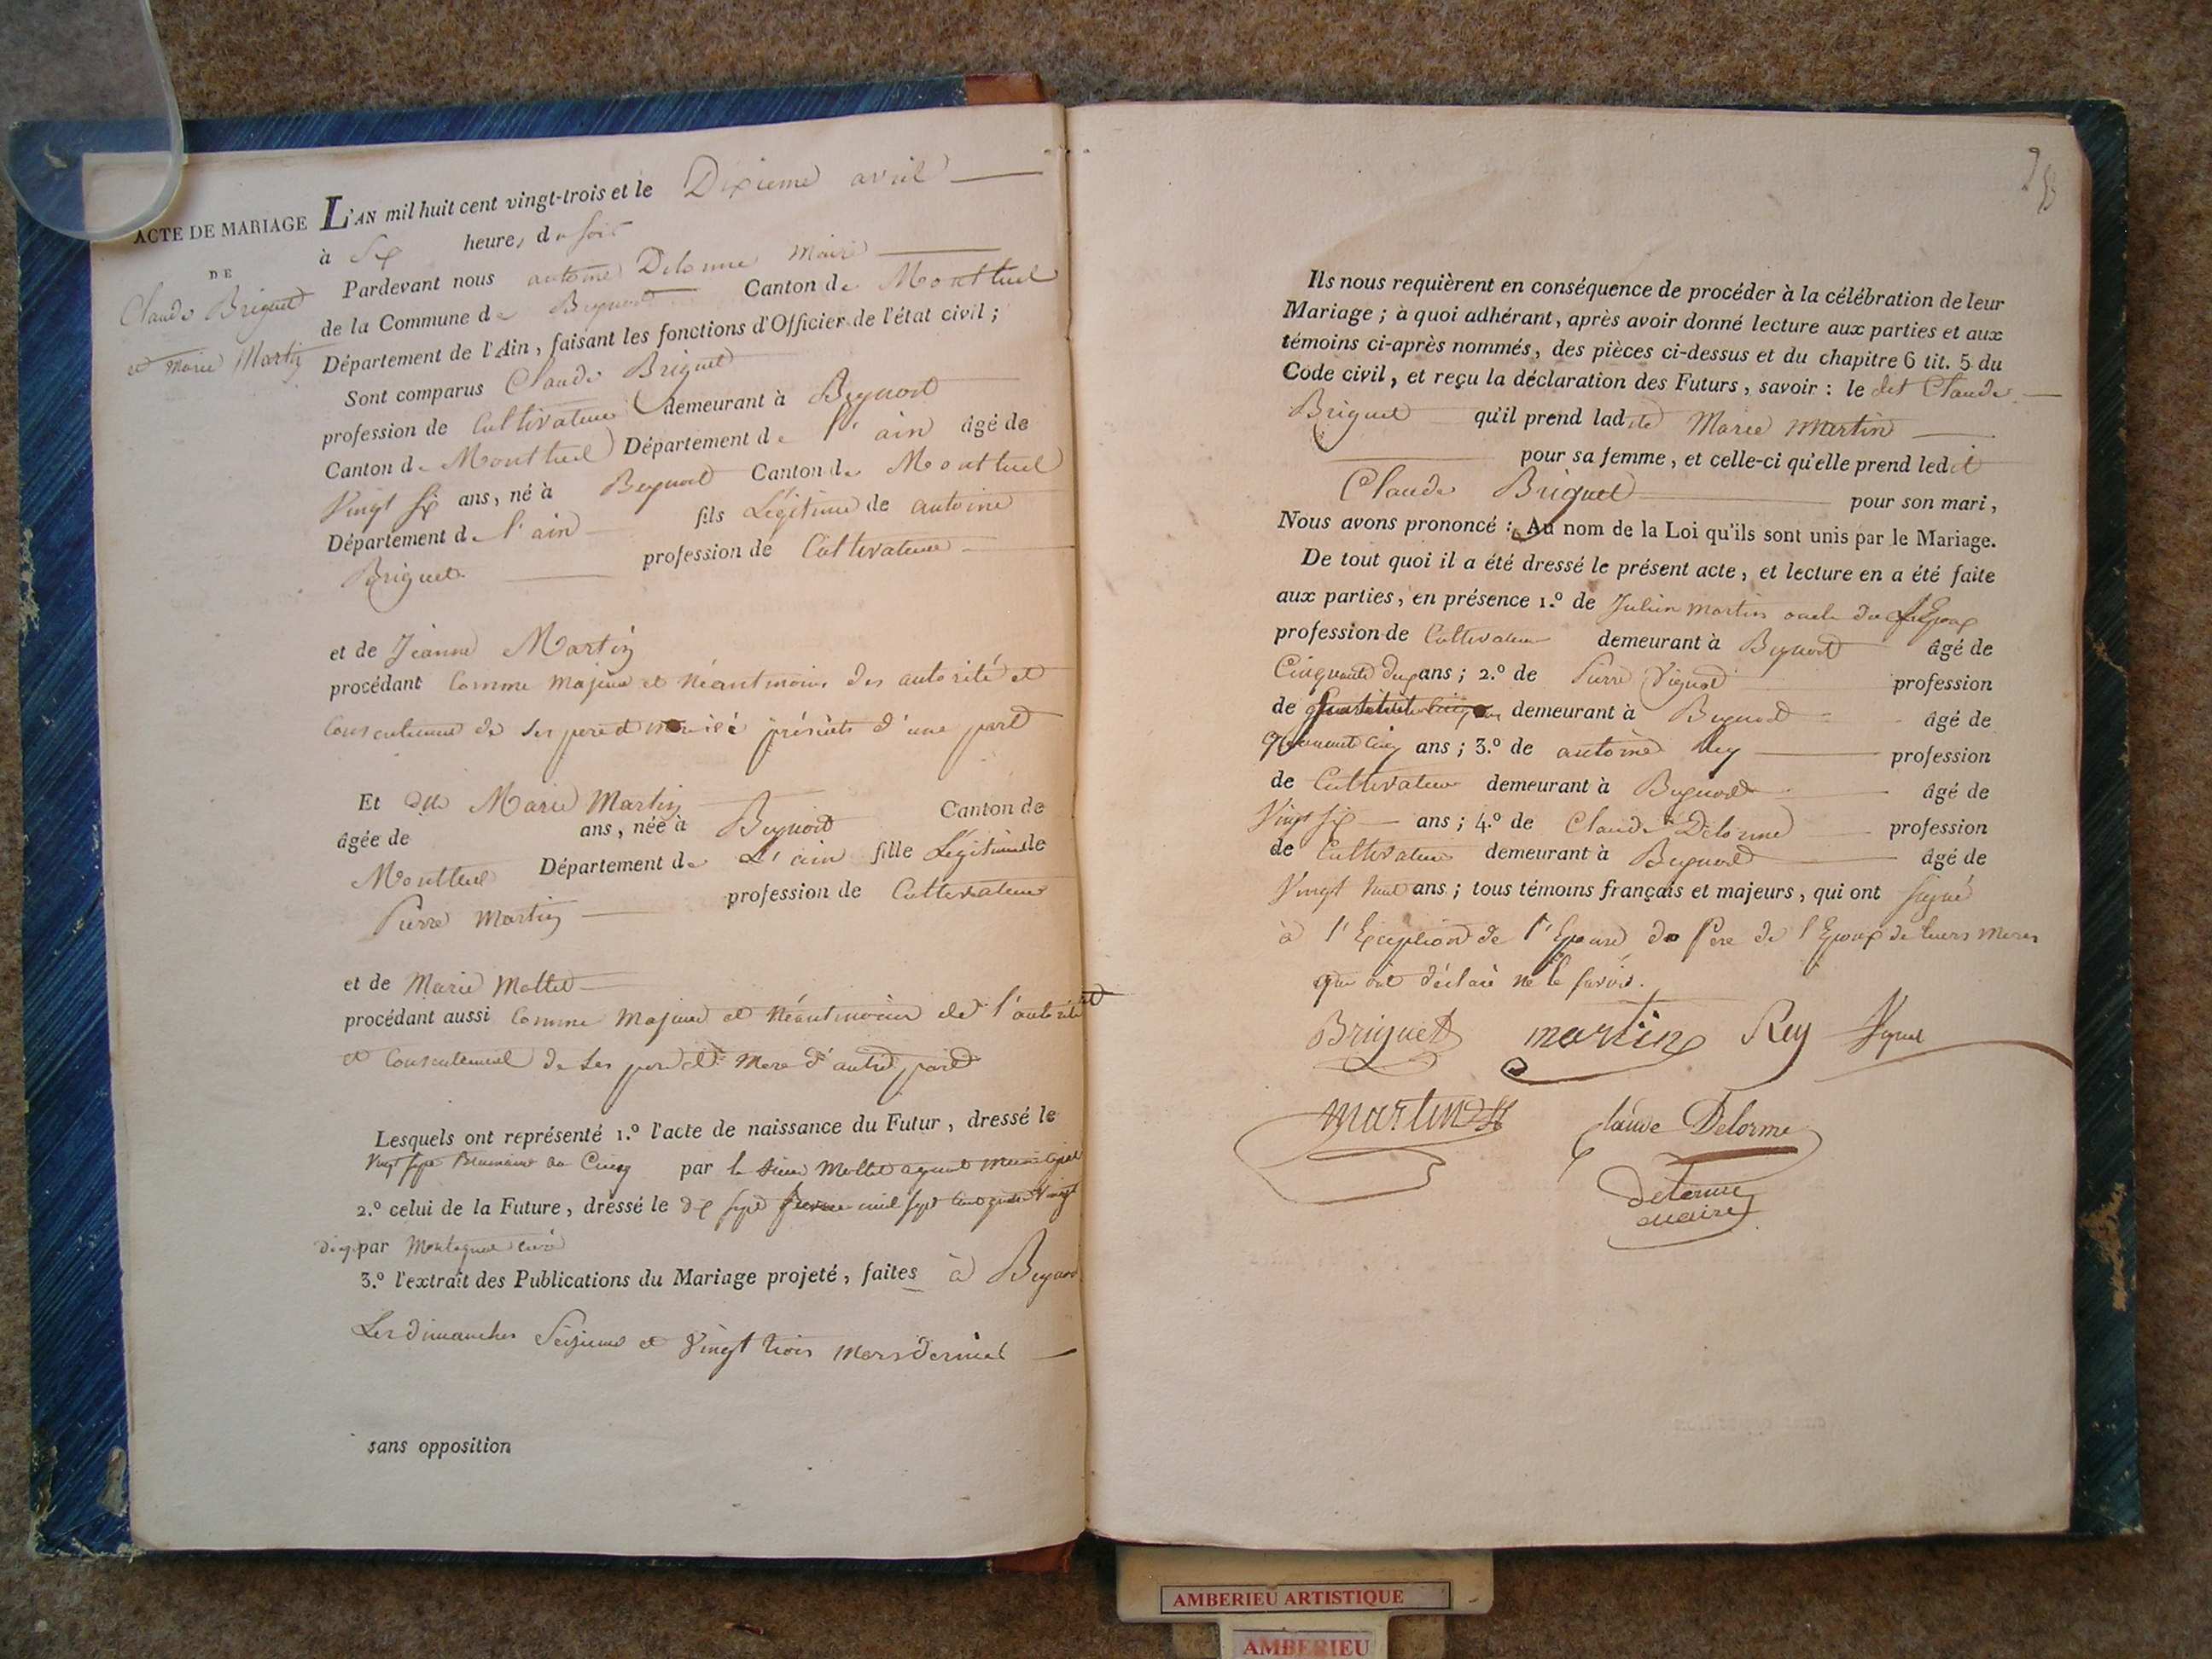 ACTE DE MARIAGE
DE
Claude Briguet
et Marie Martin
L'AN mil huit cent vingt-trois et le Dixieme avril
à Six heures du soir
Pardevant nous antoine Delorme Maire
de la Commune de Beynost Canton de Montluel
Département de l'Ain, faisant les fonctions d'Officier de l'état civil ;
Sont comparus Claude Briguet
profession de Cultivateur demeurant à Beynost
Canton de Montluel Département de l'ain âgé de
Vingt six ans, né à Beynost Canton de Montluel
Département de l'ain fils Légitime de antoine
Briguet profession de Cultivateur
et de Jeanne Martin
procédant Comme majeur et Néantmoins des autorité et
Consentement de ses pere et présents d'une part
Et Marie Martin
âgée de ans, née à Beynost Canton de
Montluel Département de L'ain fille Légitime de
Pierre Martin profession de Cultivateur
et de Marie Mottet
procédant aussi Comme Majeure et Néantmoins de l'autorité
et Consentement de ses pere et Mere d'autre part
Lesquels ont représenté 1.º l'acte de naissance du Futur, dressé le
Vingt sept Brumaire an Cinq par le sieur Mottet agent municipal
2.º celui de la Future, dressé le dix sept mil sept Cent quatre Vingt
dix par Montagnat curé
3.º l'extrait des Publications du Mariage projeté, faites à Beynost
Les dimanches Seizieme et Vingt trois Mars dernier
sans opposition
Ils nous requièrent en conséquence de procéder à la célébration de leur
Mariage ; à quoi adhérant, après avoir donné lecture aux parties et aux
témoins ci-après nommés, des pièces ci-dessus et du chapitre 6 tit. 5 du
Code civil, et reçu la déclaration des Futurs, savoir : le dit Claude
Briguet qu'il prend ladite Marie Martin
pour sa femme, et celle-ci qu'elle prend ledit
Claude Briguet pour son mari,
Nous avons prononcé : Au nom de la Loi qu'ils sont unis par le Mariage.
De tout quoi il a été dressé le présent acte, et lecture en a été faite
aux parties, en présence 1.º de Julien Martin oncle de l'Epoux
profession de Cultivateur demeurant à Beynost âgé de
Cinquante deux ans ; 2.º de Pierre Vignat profession
de demeurant à Beynost âgé de
ans ; 3.º de antoine Rey profession
de Cultivateur demeurant à Beynost âgé de
Vingt six ans ; 4.º de Claude Delorme profession
de Cultivateur demeurant à Beynost âgé de
Vingt huit ans ; tous témoins français et majeurs, qui ont signé
à l'Exception de l'Epouse du Pere de l'Epoux de leurs meres
qui ont déclaré ne le savoir.
Briguet martin Rey
martin Claude Delorme
Delorme
Maire
AMBERIEU ARTISTIQUE
AMBERIEU